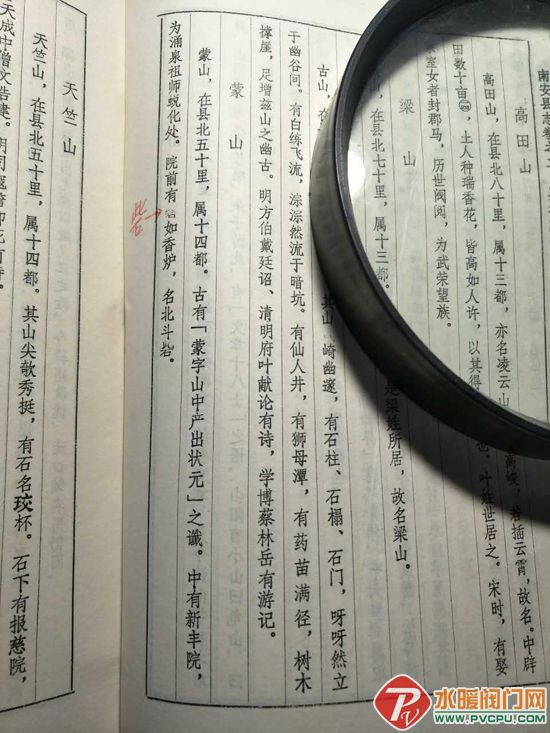 南安县志卷之
高田山
高田山，在县北八十里，属十三都，亦名凌云山
高峻，若插云霄，故名。中辟
田数十亩，土人种瑞香花，皆高如人许，以其得
也。叶姓世居之。宋时，有娶
宗室女者封郡马，历世阀阅，为武荣望族。
梁山
在县北七十里，属十三都
是梁姓所居，故名梁山。
古山，在
其山崎幽邃，有石柱、石榻、石门，呀呀然立
于幽谷间。有白练飞流，淙淙然流于暗坑。有仙人井，有狮母潭，有药苗满径，树木
撑崖，足增兹山之幽古。明方伯戴廷诏、清明府叶献论有诗，学博蔡林岳有游记。
蒙山
蒙山，在县北五十里，属十四都。古有「蒙字山中产出状元」之谶。中有新丰院，
为涌泉祖师蜕化处。院前有 如香炉，名北斗砦。
天竺山
天竺山，在县北五十里，属十四都。其山尖欹秀挺，有石名珓杯。石下有报慈院，
水暖阀门网
WWW.PVCPU.COM